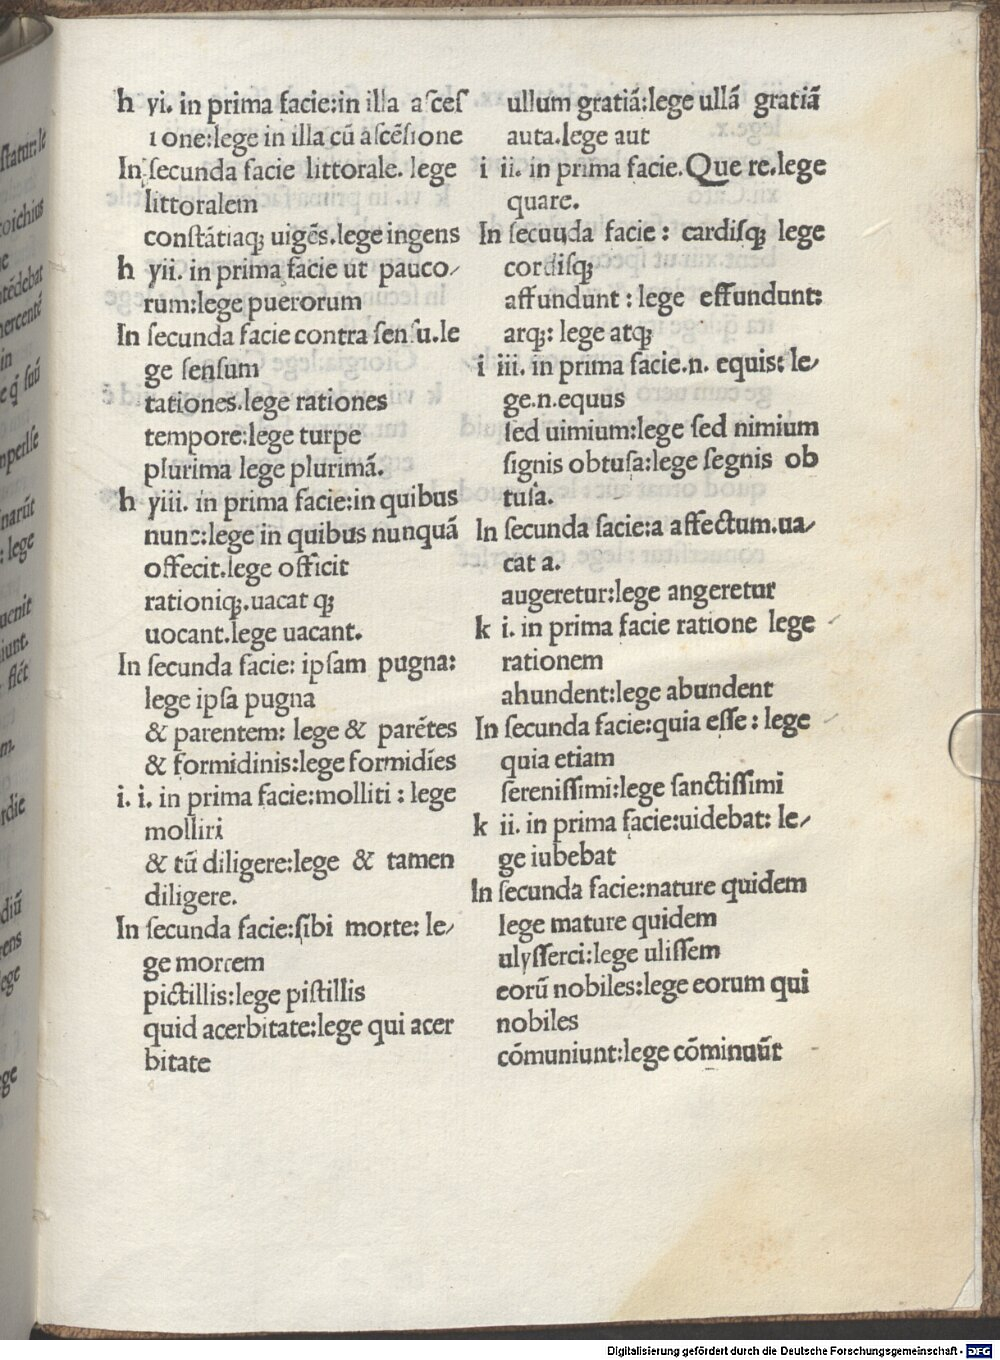 h yi. in prima facie:in illa aſceſ
ione:lege in illa cū aſcēſione
In ſecunda facie littorale. lege
littoralem
conſtātiaq; uigēs.lege ingens
h yii. in prima facie ut pauco⸗
rum:lege puerorum
In ſecunda facie contra ſenſu.le
ge ſenſum
tationes.lege rationes
tempore:lege turpe
plurima lege plurimā.
h yiii. in prima facie:in quibus
nunc:lege in quibus nunquā
offecit.lege officit
rationiq;.uacat q;
uocant.lege uacant.
In ſecunda facie: ipſam pugna:
lege ipſa pugna
& parentem: lege & parētes
& formidinis:lege formidīes
i. i. in prima facie:molliti : lege
molliri
& tū diligere:lege & tamen
diligere.
In ſecunda facie:ſibi morte: le⸗
ge mortem
pictillis:lege piſtillis
quid acerbitate:lege qui acer
bitate
ullum gratiā:lege ullā gratiā
auta.lege aut
i ii. in prima facie.Que re.lege
quare.
In ſecuuda facie : cardiſq; lege
cordiſq;
affundunt : lege effundunt:
arq;: lege atq;
i iii. in prima facie.n. equis: le⸗
ge.n.equus
ſed uimium:lege ſed nimium
ſignis obtuſa:lege ſegnis ob
tuſa.
In ſecunda facie:a affectum.ua⸗
cat a.
augeretur:lege angeretur
k i. in prima facie ratione lege
rationem
ahundent:lege abundent
In ſecunda facie:quia eſſe : lege
quia etiam
ſereniſſimi:lege ſanctiſſimi
k ii. in prima facie:uidebat: le⸗
ge iubebat
In ſecunda facie:nature quidem
lege mature quidem
ulyſſerci:lege uliſſem
eorū nobiles:lege eorum qui
nobiles
cōmuniunt:lege cōminuūt
Digitalisierung gefördert durch die Deutsche Forschungsgemeinschaft - DFG